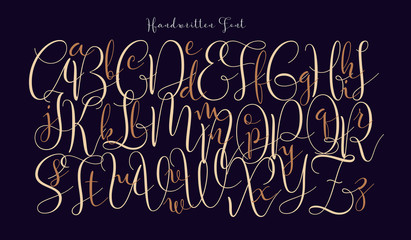 Handwritten Font
Aa Bb Cc Dd Ee Ff Gg Hh Ii
Jj Kk Ll Mm Nn Oo Pp Qq Rr
Ss Tt Uu Vv Ww Xx Yy Zz